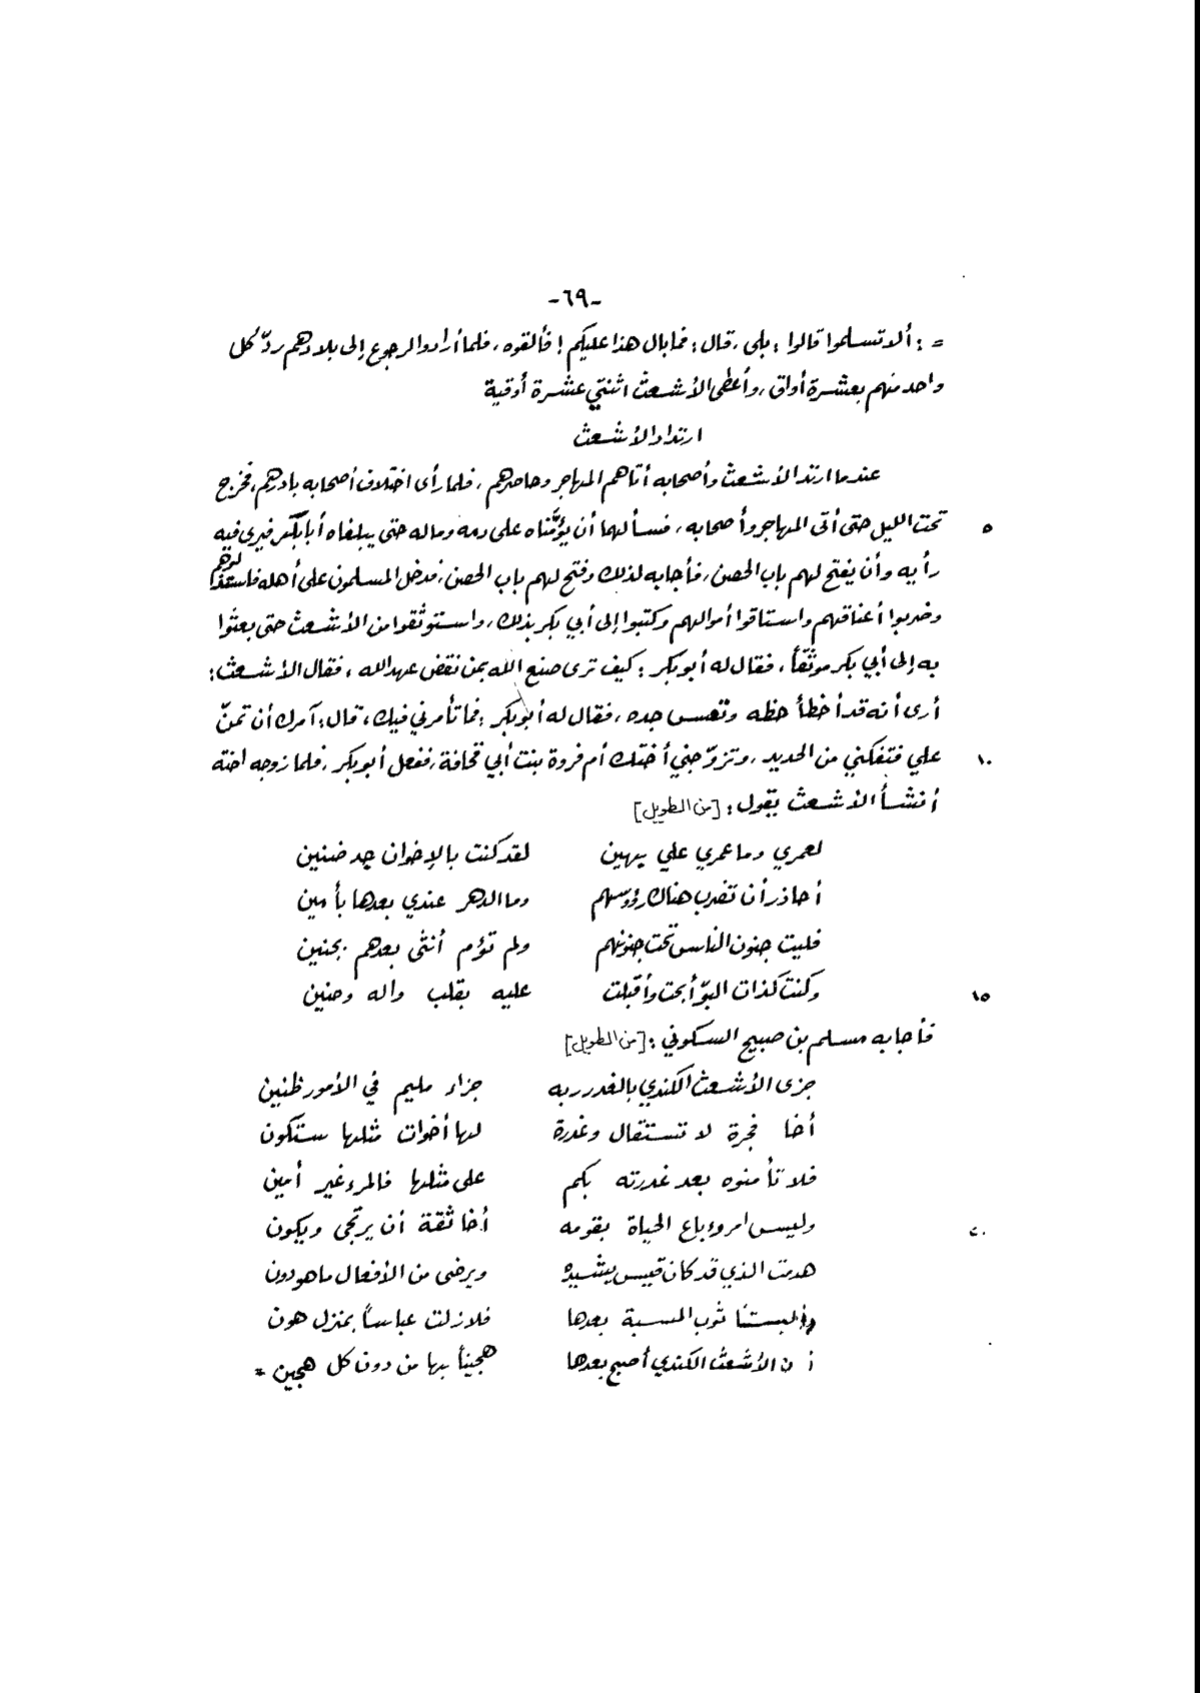 -٦٩-
= : ألا تسلموا قالوا : بلى ، قال : فما بال هذا عليكم ! فألقوه ، فلما أرادوا الرجوع إلى بلادهم ردّ كل
واحد منهم بعشرة أواق ، وأعطى الأشعث اثنتي عشرة أوقية
ارتداد الأشعث
عندما ارتد الأشعث وأصحابه أتاهم المهاجر وحاصرهم ، فلما رأى اختلاف أصحابه بادرهم ، فخرج
٥ تحت الليل حتى أتى المهاجر وأصحابه ، فسألهما أن يؤمّناه على دمه وماله حتى يبلغاه أبا بكر فيرى فيه
رأيه وأن يفتح لهم باب الحصن ، فأجابه لذلك وفتح لهم باب الحصن ، فدخل المسلمون على أهله فاستنزلوهم
وضربوا أعناقهم واستاقوا أموالهم وكتبوا إلى أبي بكر بذلك ، واستوثقوا من الأشعث حتى بعثوا
به إلى أبي بكر موثّقاً ، فقال له أبو بكر : كيف ترى صنع الله بمن نقض عهد الله ، فقال الأشعث :
أرى أنه قد أخطأ حظه وتعس جده ، فقال له أبو بكر : فما تأمرني فيك ، قال : آمرك أن تمنّ
١٠ علي فتفكني من الحديد ، وتزوّجني أختك أم فروة بنت أبي قحافة ، ففعل أبو بكر ، فلما زوجه اخته
أنشأ الأشعث يقول : [من الطويل]
لعمري وما عمري علي بهين لقد كنت بالإخوان جد ضنين
أحاذر أن تضرب هناك رؤوسهم وما الدهر عندي بعدها بأمين
فليت جنون الناس تحت جنونهم ولم تؤم أنثى بعدهم بجنين
١٥ وكنت كذات البوّ أبحت وأقبلت عليه بقلب واله وحنين
فأجابه مسلم بن صبيح السكوني : [من الطويل]
جزى الأشعث الكندي بالغدر ربه جزاء مليم في الأمور ظنين
أخا فجرة لا تستقال وغدرة لها أخوات مثلها ستكون
فلا تأمنوه بعد غدرته بكم على مثلها فالمرء غير أمين
٢٠ وليس امرء باع الحياة بقومه أخا ثقة أن يرتجى ويكون
هدمت الذي قد كان قيس يشيده ويرضى من الأفعال ما هو دون
وألبستنا ثوب المسبة بعدها فلا زلت عباساً بمنزل هون
أن الأشعث الكندي أصبح بعدها هجيناً بها من دون كل هجين =